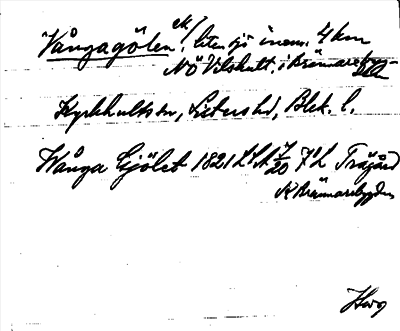 Vångagölen, ek/ liten sjö inom. 4 km
NÖ Vilshult, i Brännarebyg-
den
Kyrkhults sn, Listers hd, Blek. l.
Wånga Gjölet 1821 LSA 7/20 7:1 Trägård
K Brännarebygden